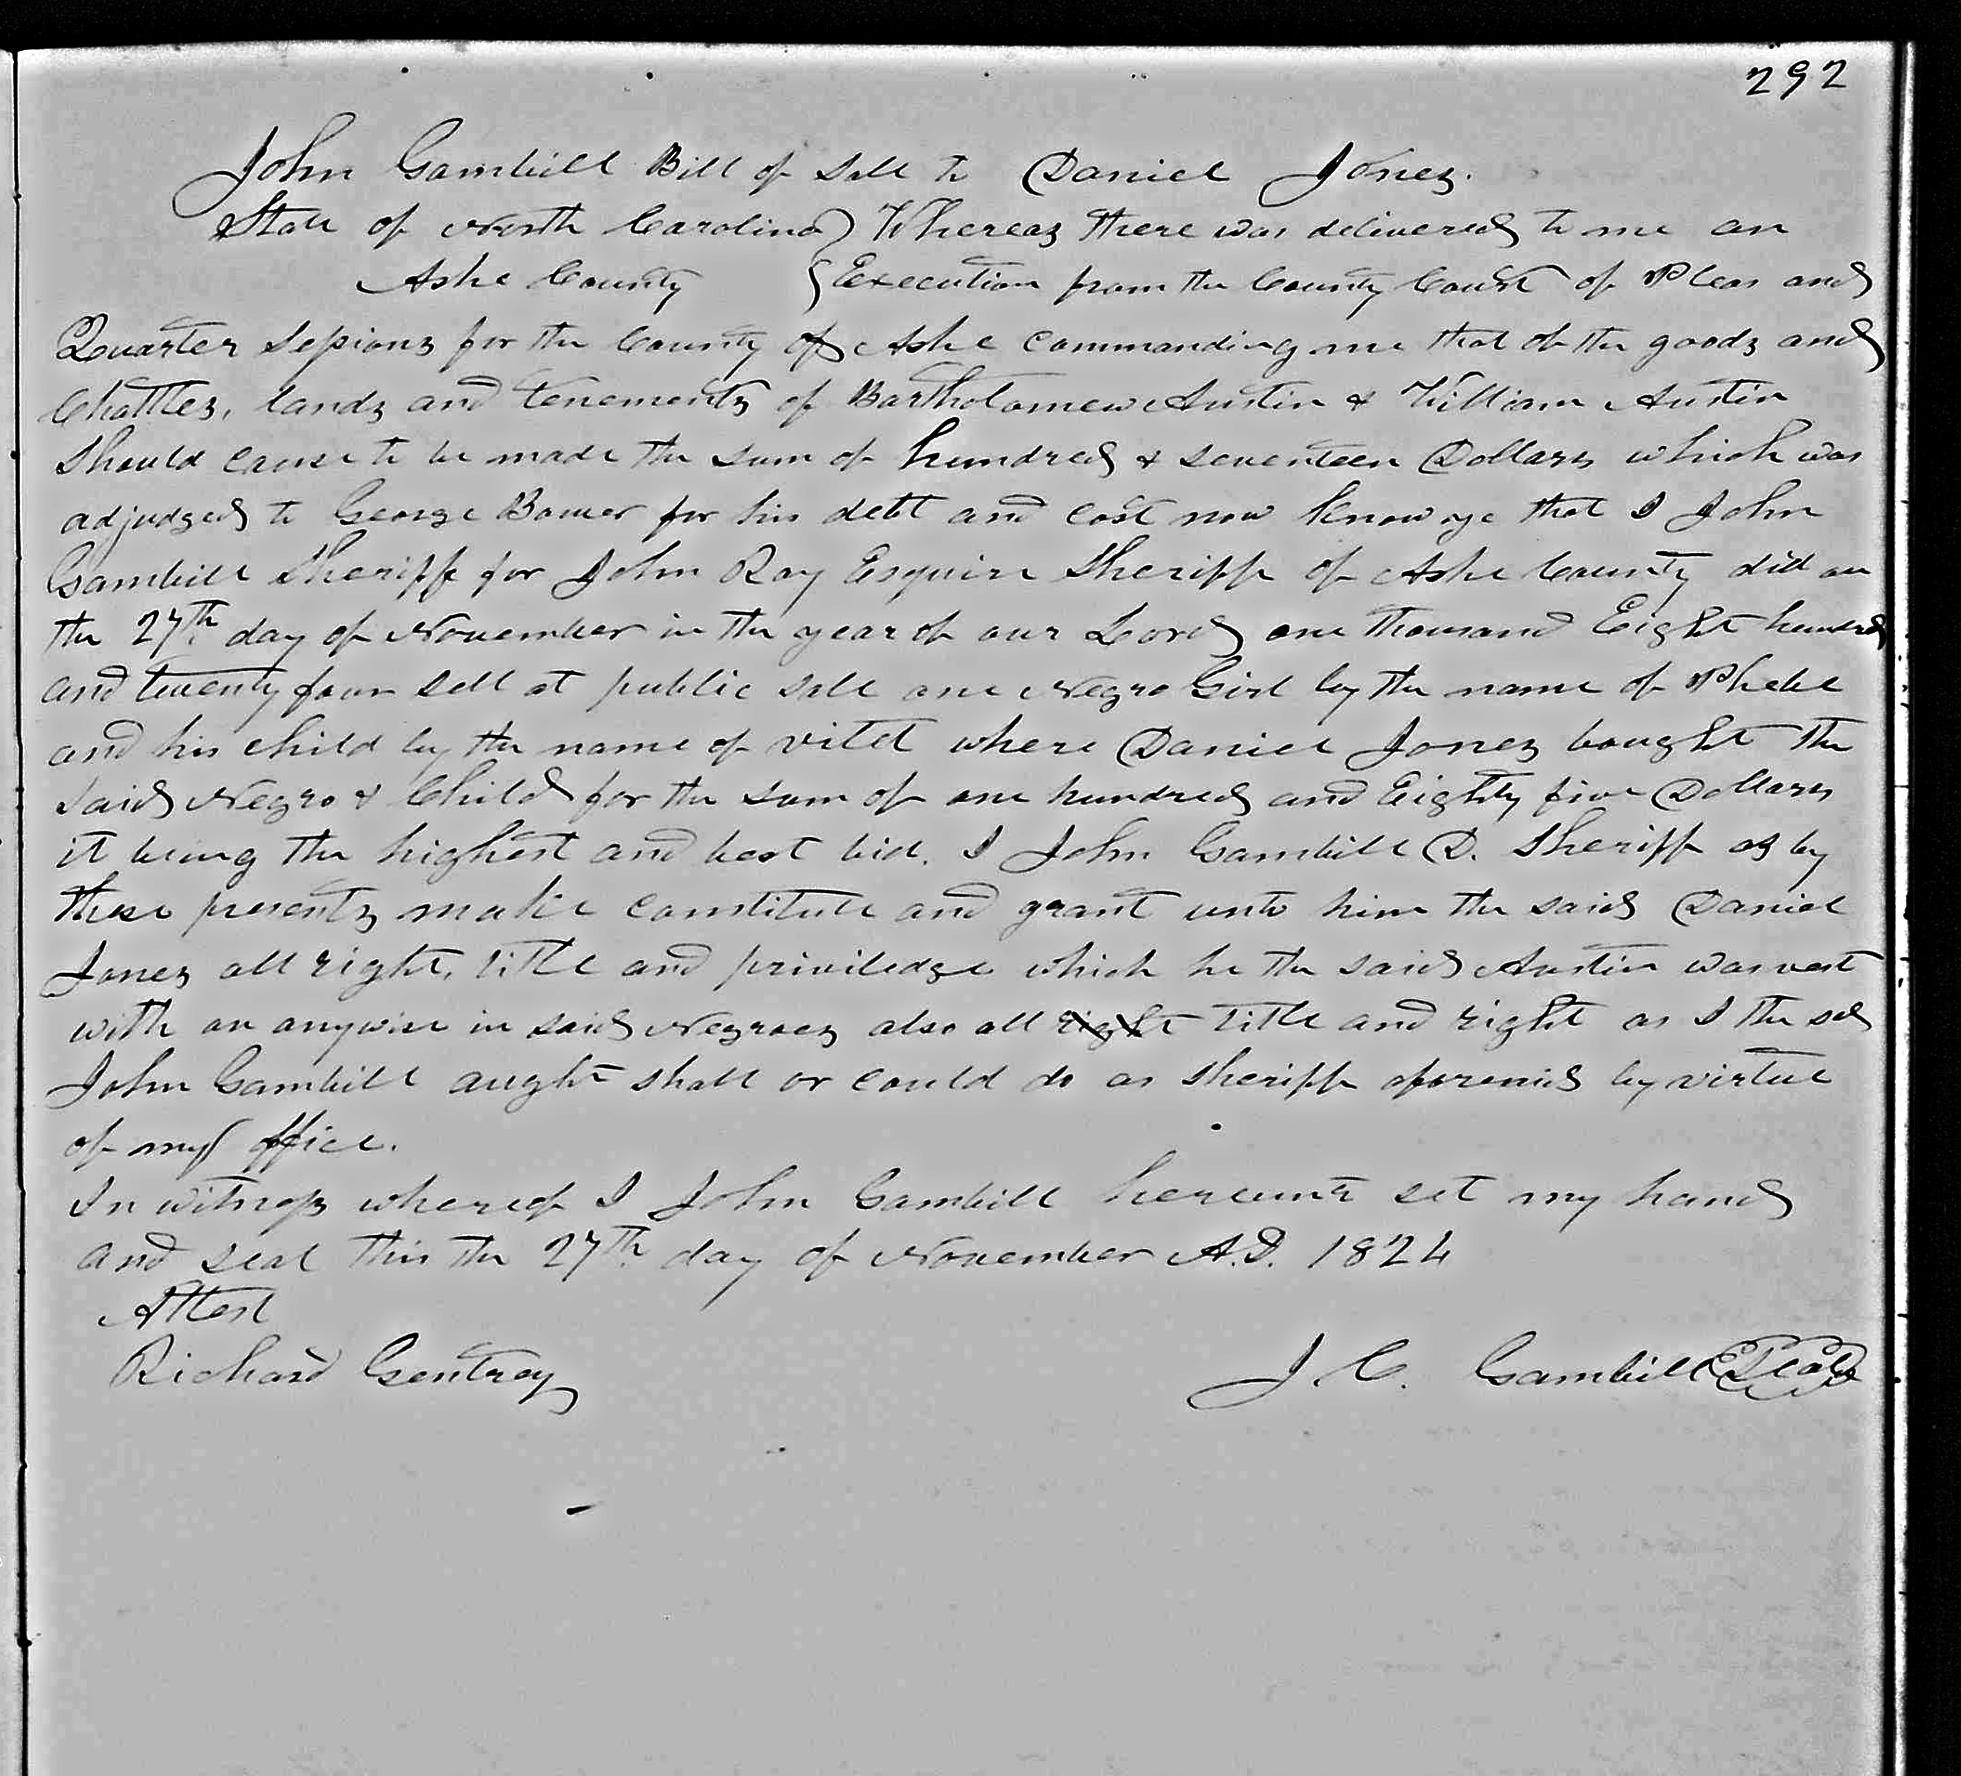 292
John Gambill Bill of Sale to Daniel Jones.
State of North Carolina } Whereas there was delivered to me an
Ashe County } Execution from the County Court of Pleas and
Quarter Sessions for the County of Ashe commanding me that of the goods and
Chattles, lands and tenements of Bartholomew Austin & William Austin
Should cause to be made the sum of hundred & seventeen Dollars which was
adjudged to George Bower for his debt and cost now Know ye that I John
Gambill Sheriff for John Ray Esquire Sheriff of Ashe County did on
the 27th day of November in the year of our Lord one thousand Eight hundred
and twenty four sell at public sale one Negro Girl by the name of Phebe
and his child by the name of where Daniel Jones bought the
said Negro & Child for the sum of one hundred and Eighty five Dollars
it being the highest and best bid. I John Gambill D. Sheriff as by
these presents make constitute and grant unto him the said Daniel
Jones all right, title and priviledge which he the said Austin was vest
with an anywise in said Negroes also all right title and right as I the sd
John Gambill aught shall or could do as Sheriff aforesaid by virtue
of my office.
In witness whereof I John Gambill hereunto set my hand
and seal this the 27th day of November A.D. 1824
Attest
Richard Gentrey
J. C. Gambill Seal